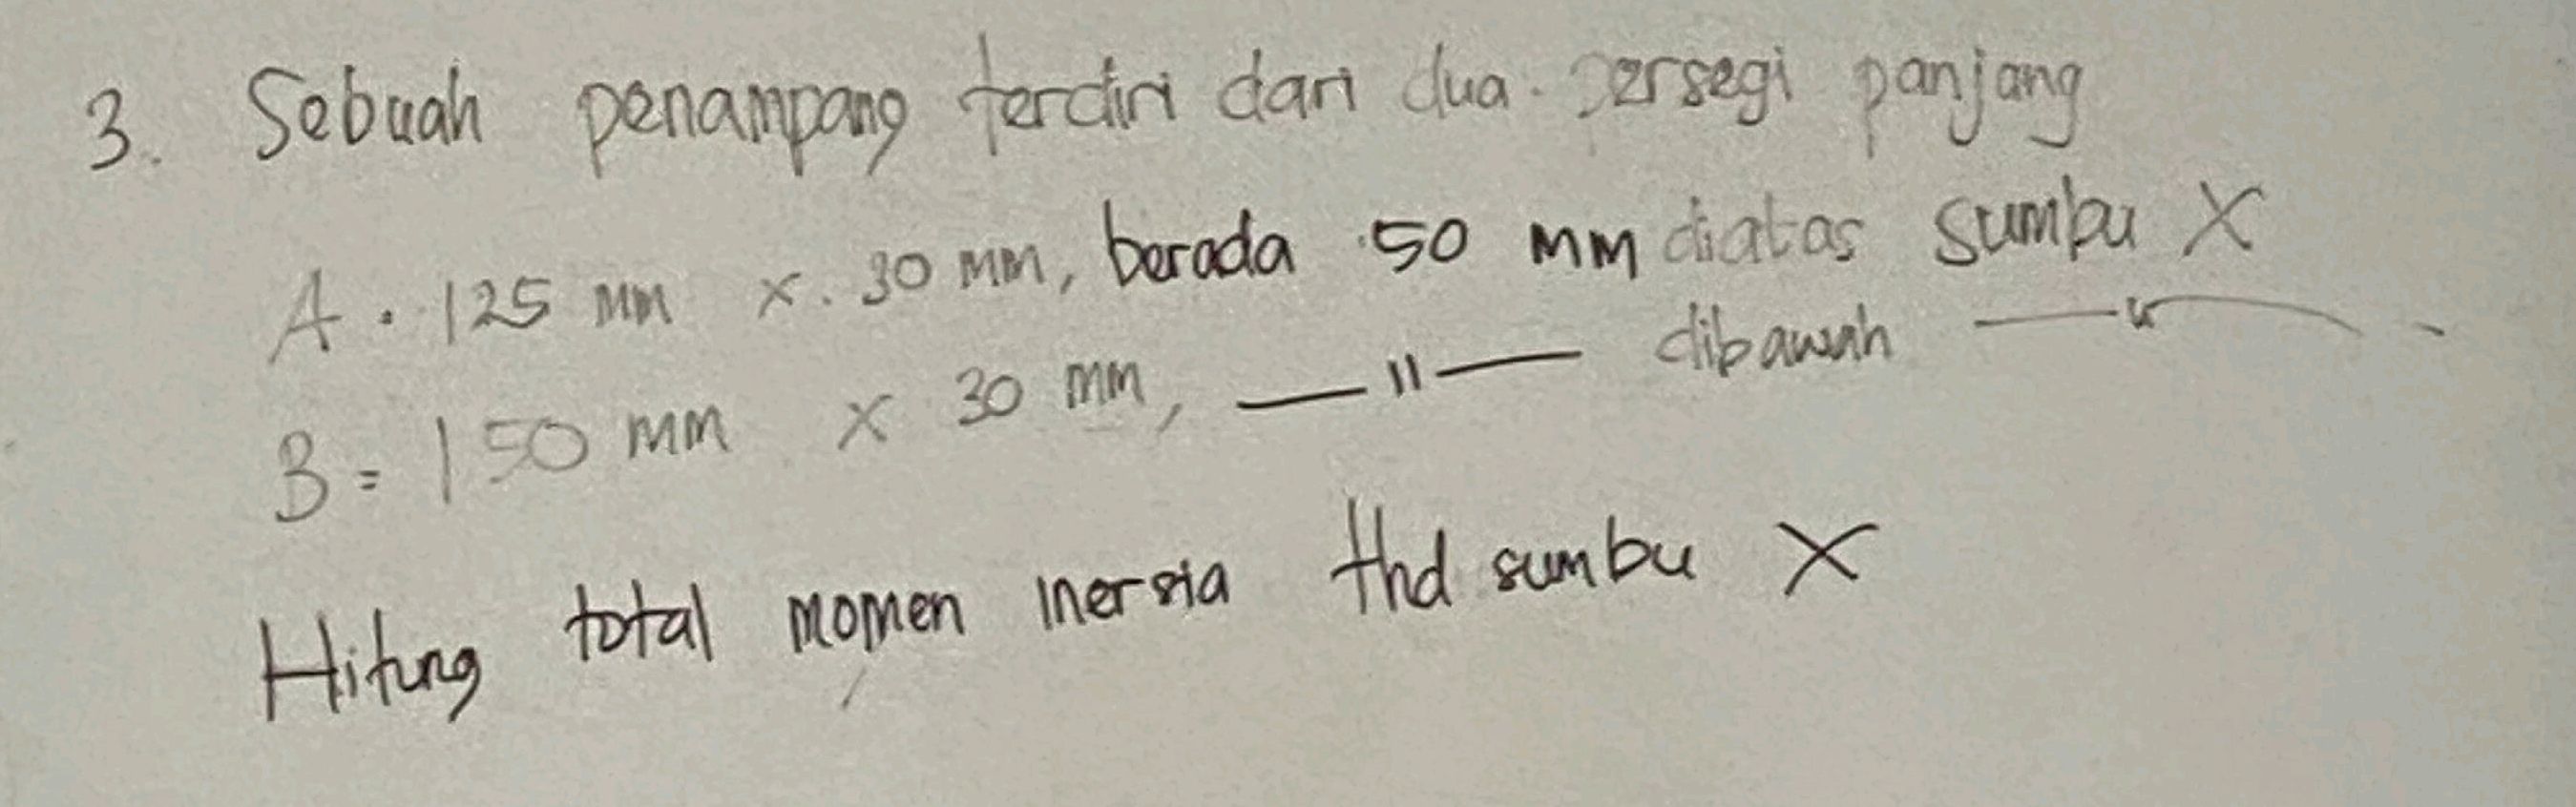 3. Sebuah penampang terdiri dari dua persegi panjang
A. 125 mm x 30 mm, berada 50 mm diatas sumbu X
B = 150 mm x 30 mm, —"— dibawah —"—.
Hitung total momen inersia thd sumbu X